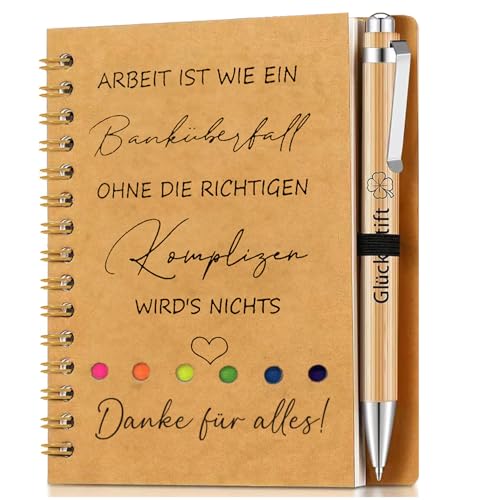 ARBEIT IST WIE EIN
Banküberfall
OHNE DIE RICHTIGEN
Komplizen
WIRD'S NICHTS
Danke für alles!